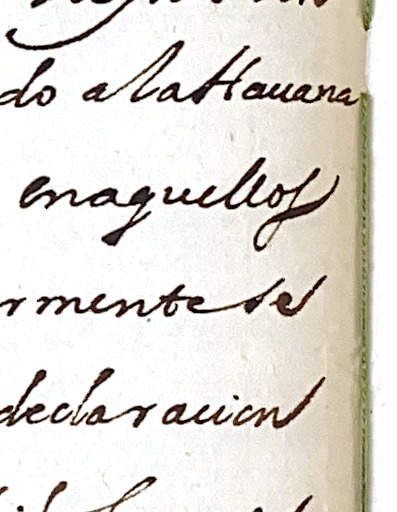 do a la Hauana
en aquellos
rmente se
declaracion